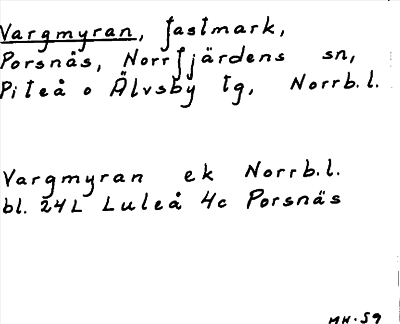 Vargmyran, fastmark,
Porsnäs, Norrfjärdens sn,
Piteå o Älvsby tg, Norrb.l.
Vargmyran ek Norrb.l.
bl. 24L Luleå 4c Porsnäs
MH-59